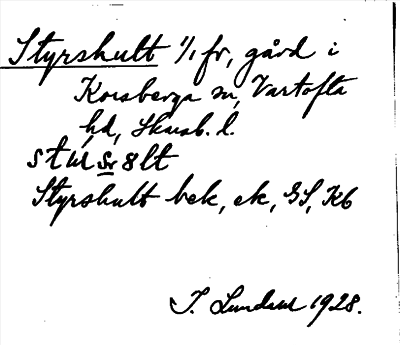 Styrshult 1/1 fr, gård i
Korsberga sn, Vartofta
hd, Skarab. l.
Styrshult bek, ek, GS, Kb
J. Lundahl 1928.